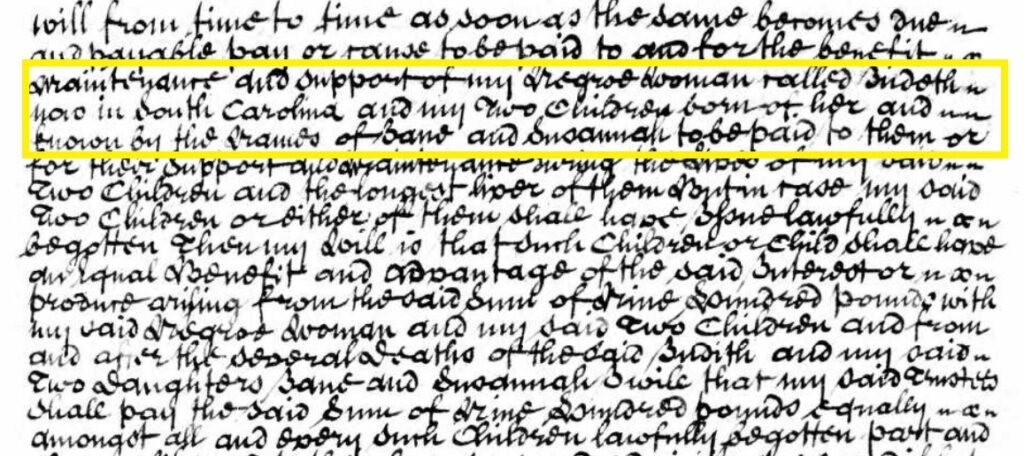 will from time to time as soon as the same becomes due
and payable pay or cause to be paid to and for the benefit
Maintenance and Support of my Negroe Woman called Judeth
now in South Carolina and my Two Children born of her and
known by the Names of Jane and Susannah to be paid to them or
for their Support and Maintenance during the Lives of my said
Two Children and the longest liver of them But in case my said
Two Children or either of them shall have Issue lawfully
begotten Then my Will is that such Children or Child shall have
an Equal Benefit and advantage of the said Interest or
produce arising from the said Sum of Nine Hundred pounds with
my said Negroe Woman and my said Two Children and from
and after the several Deaths of the said Judith and my said
Two Daughters Jane and Susannah I will that my said Trustees
shall pay the said Sum of Nine Hundred pounds equally
amongst all and every such Children lawfully begotten part and